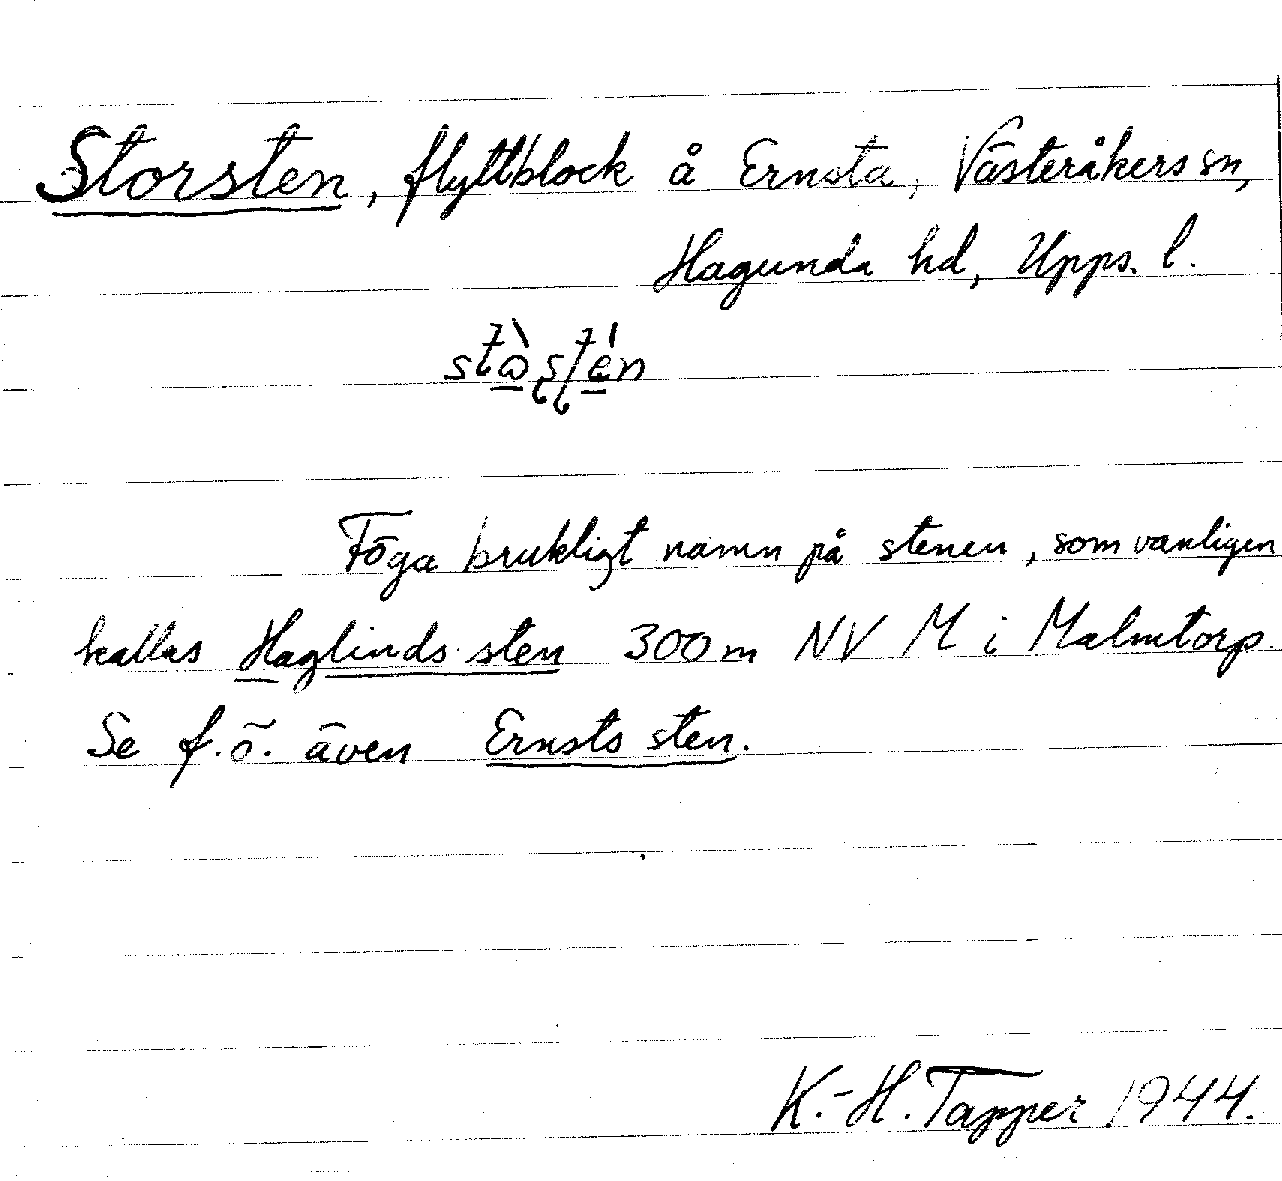 Storsten, flyttblock å Ernsta, Västeråkers sn,
Hagunda hd, Upps. l.
Föga brukligt namn på stenen, som vanligen
kallas Haglinds sten 300 m NV M i Malmtorp.
Se f.ö. även Ernsts sten.
K.-H. Tapper 1944.